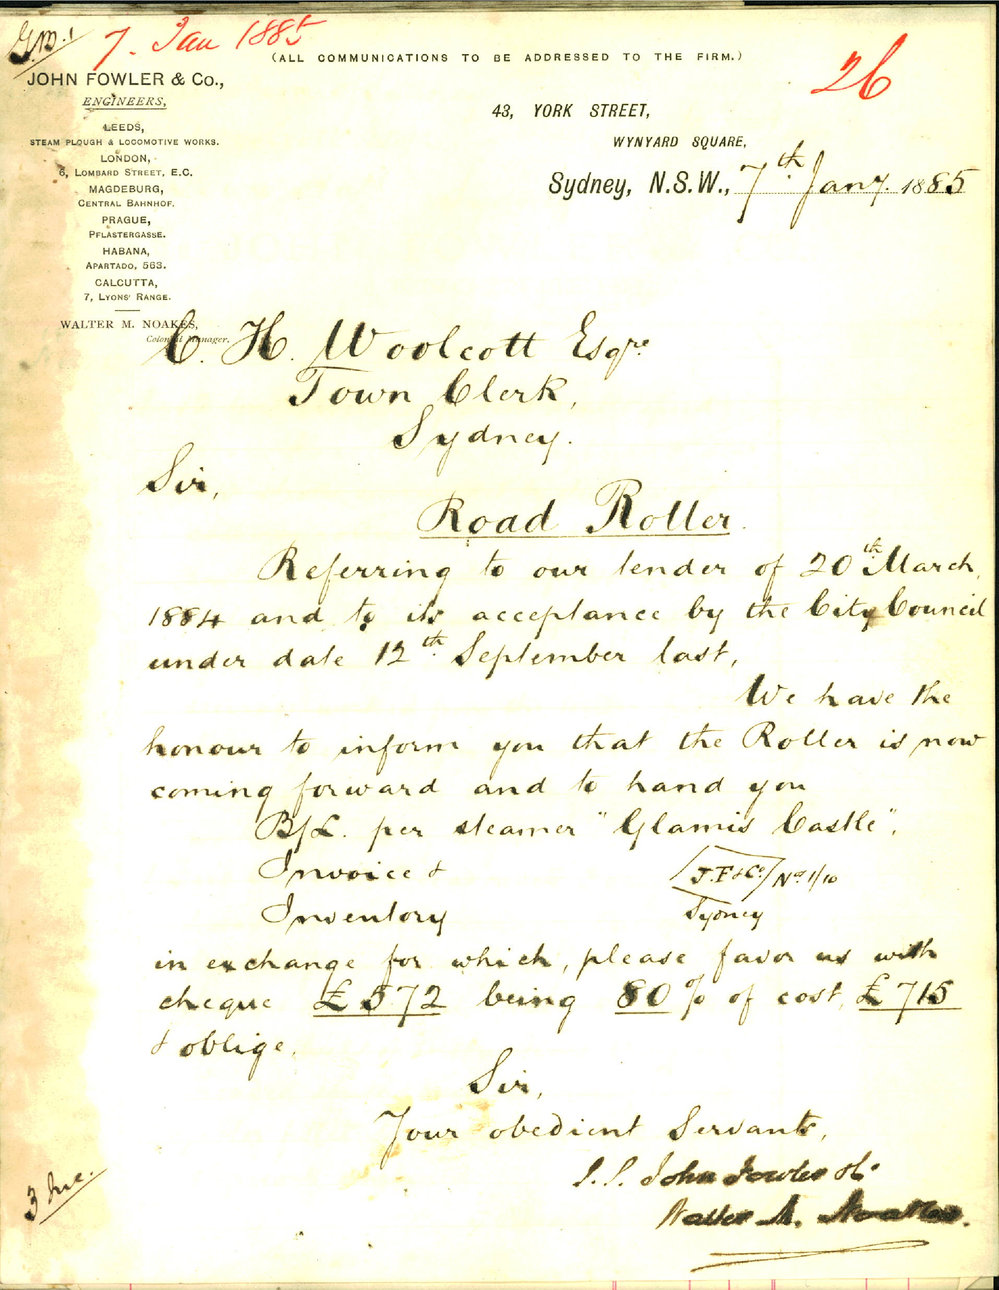 G.M. 1
7. Jan 1885
26
(ALL COMMUNICATIONS TO BE ADDRESSED TO THE FIRM.)
JOHN FOWLER & Co.,
ENGINEERS,
LEEDS,
STEAM PLOUGH & LOCOMOTIVE WORKS.
LONDON,
6, LOMBARD STREET, E.C.
MAGDEBURG,
CENTRAL BAHNHOF.
PRAGUE,
PFLASTERGASSE.
HABANA,
APARTADO, 563.
CALCUTTA,
7, LYONS' RANGE.
WALTER M. NOAKES,
Colonial Manager.
43, YORK STREET,
WYNYARD SQUARE,
Sydney, N.S.W., 7th Jany. 1885
C. H. Woolcott Esqre
Town Clerk,
Sydney.
Sir,
Road Roller.
Referring to our tender of 20th March,
1884 and to its acceptance by the City Council
under date 12th September last,
We have the
honour to inform you that the Roller is now
coming forward and to hand you
B/L. per steamer "Glamis Castle",
Invoice &
J.F & Co No 1/10
Inventory
Sydney
in exchange for which, please favor us with
cheque £572 being 80% of cost, £715
& oblige,
Sir,
Your obedient Servants,
John Fowler & Co
Walter M. Noakes.
3 Inc.